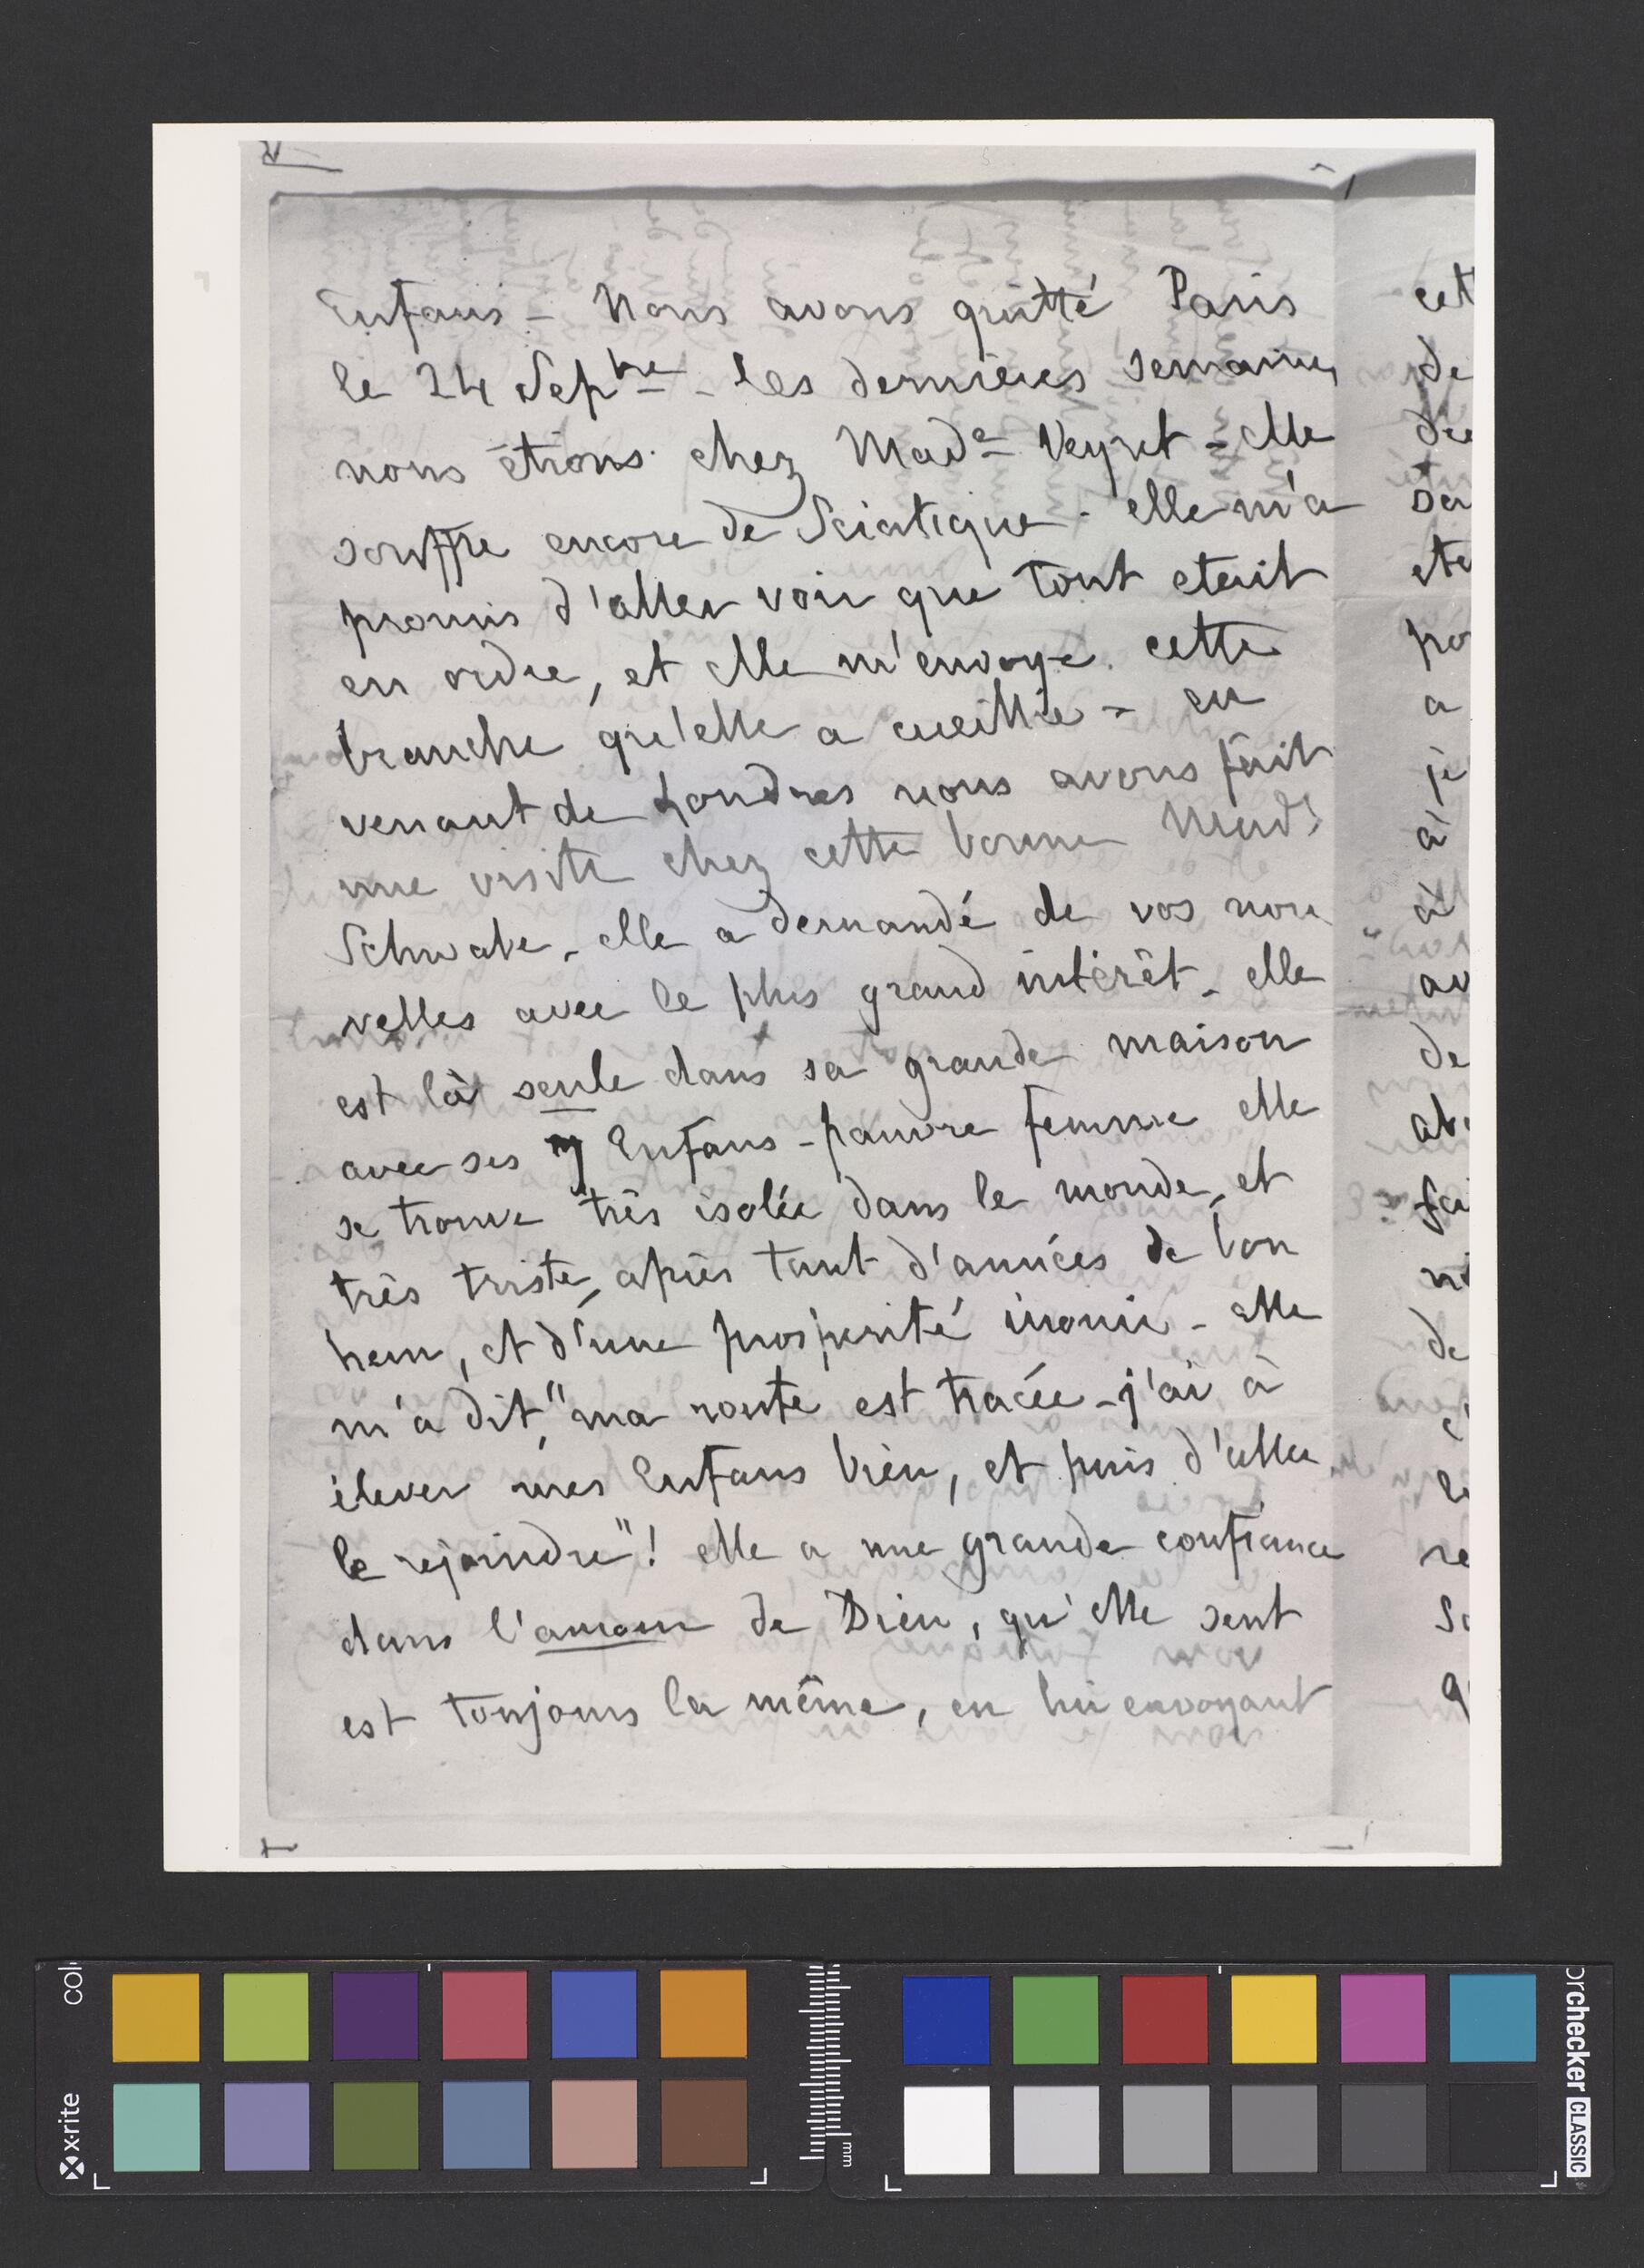 Enfans - Nous avons quitté Paris
le 24 Sepbre - les dernières semaines
nous étions chez Made Veyret - elle
souffre encore de Sciatique - elle m'a
promis d'aller voir que tout etait
en ordre, et elle m'envoye cette
branche qu'elle a cueillie - en
venant de Londres nous avons fait
une visite chez cette bonne Made
Schwabe - elle a demandé de vos nou
velles avec le plus grand intérêt - elle
est là seule dans sa grande maison
avec ses 7 Enfans - pauvre femme elle
se trouve très isolée dans le monde, et
très triste, après tant d'années de bon
heur, et d'une prosperité inouie - elle
m'a dit, "ma route est tracée - j'ai à
élever mes Enfans bien, et puis d'aller
le rejoindre"! elle a une grande confiance
dans l'amour de Dieu, qu'elle sent
est toujours la même, en lui envoyant
cet
de
sa
po
a
je
à
à
av
de
fai
de
re
x-rite
colorchecker CLASSIC
mm